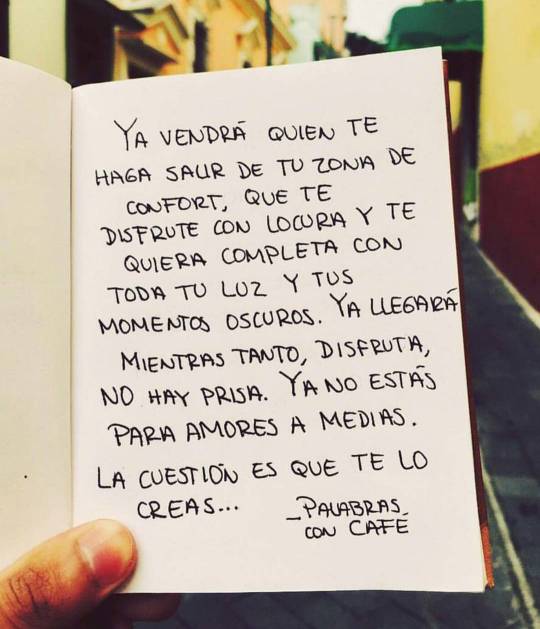 YA VENDRÁ QUIEN TE
HAGA SALIR DE TU ZONA DE
CONFORT, QUE TE
DISFRUTE CON LOCURA Y TE
QUIERA COMPLETA CON
TODA TU LUZ Y TUS
MOMENTOS OSCUROS. YA LLEGARÁ
MIENTRAS TANTO, DISFRUTA,
NO HAY PRISA. YA NO ESTÁS
PARA AMORES A MEDIAS.
LA CUESTIÓN ES QUE TE LO
CREAS...
_PALABRAS_
CON CAFÉ